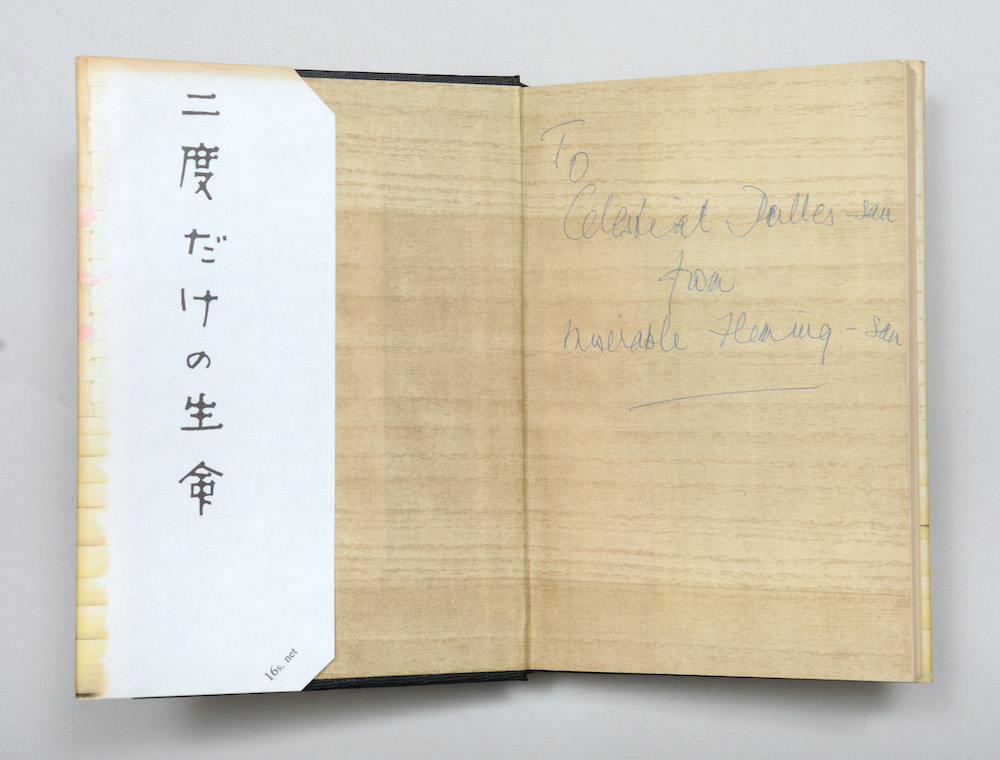 二度だけの生命
16s. net
To
Celestial Dulles-san
from
Miserable Fleming-san